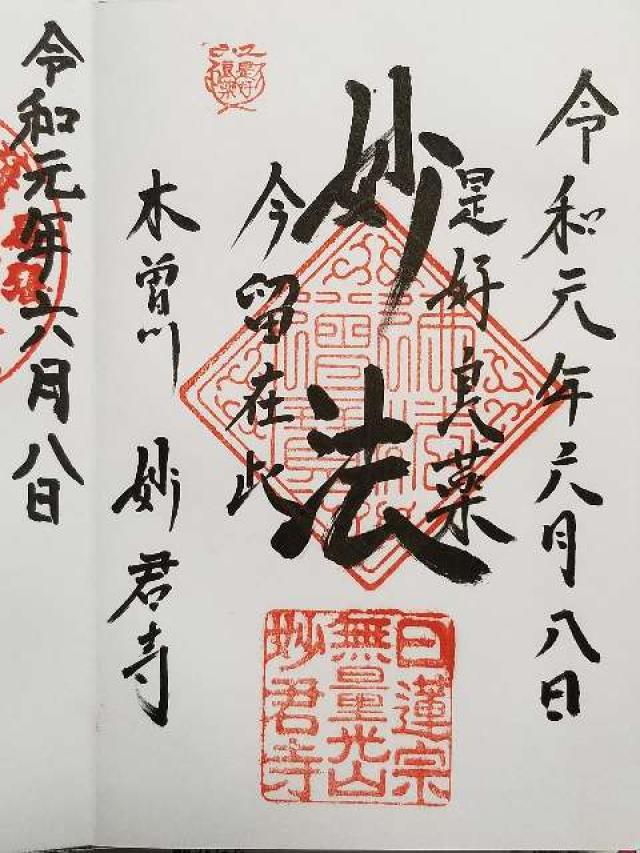 令和元年六月八日
是好良薬
妙法
今留在此
木曽川 妙君寺
日蓮宗
無量光山
妙君寺
是好
良薬
令和元年六月八日